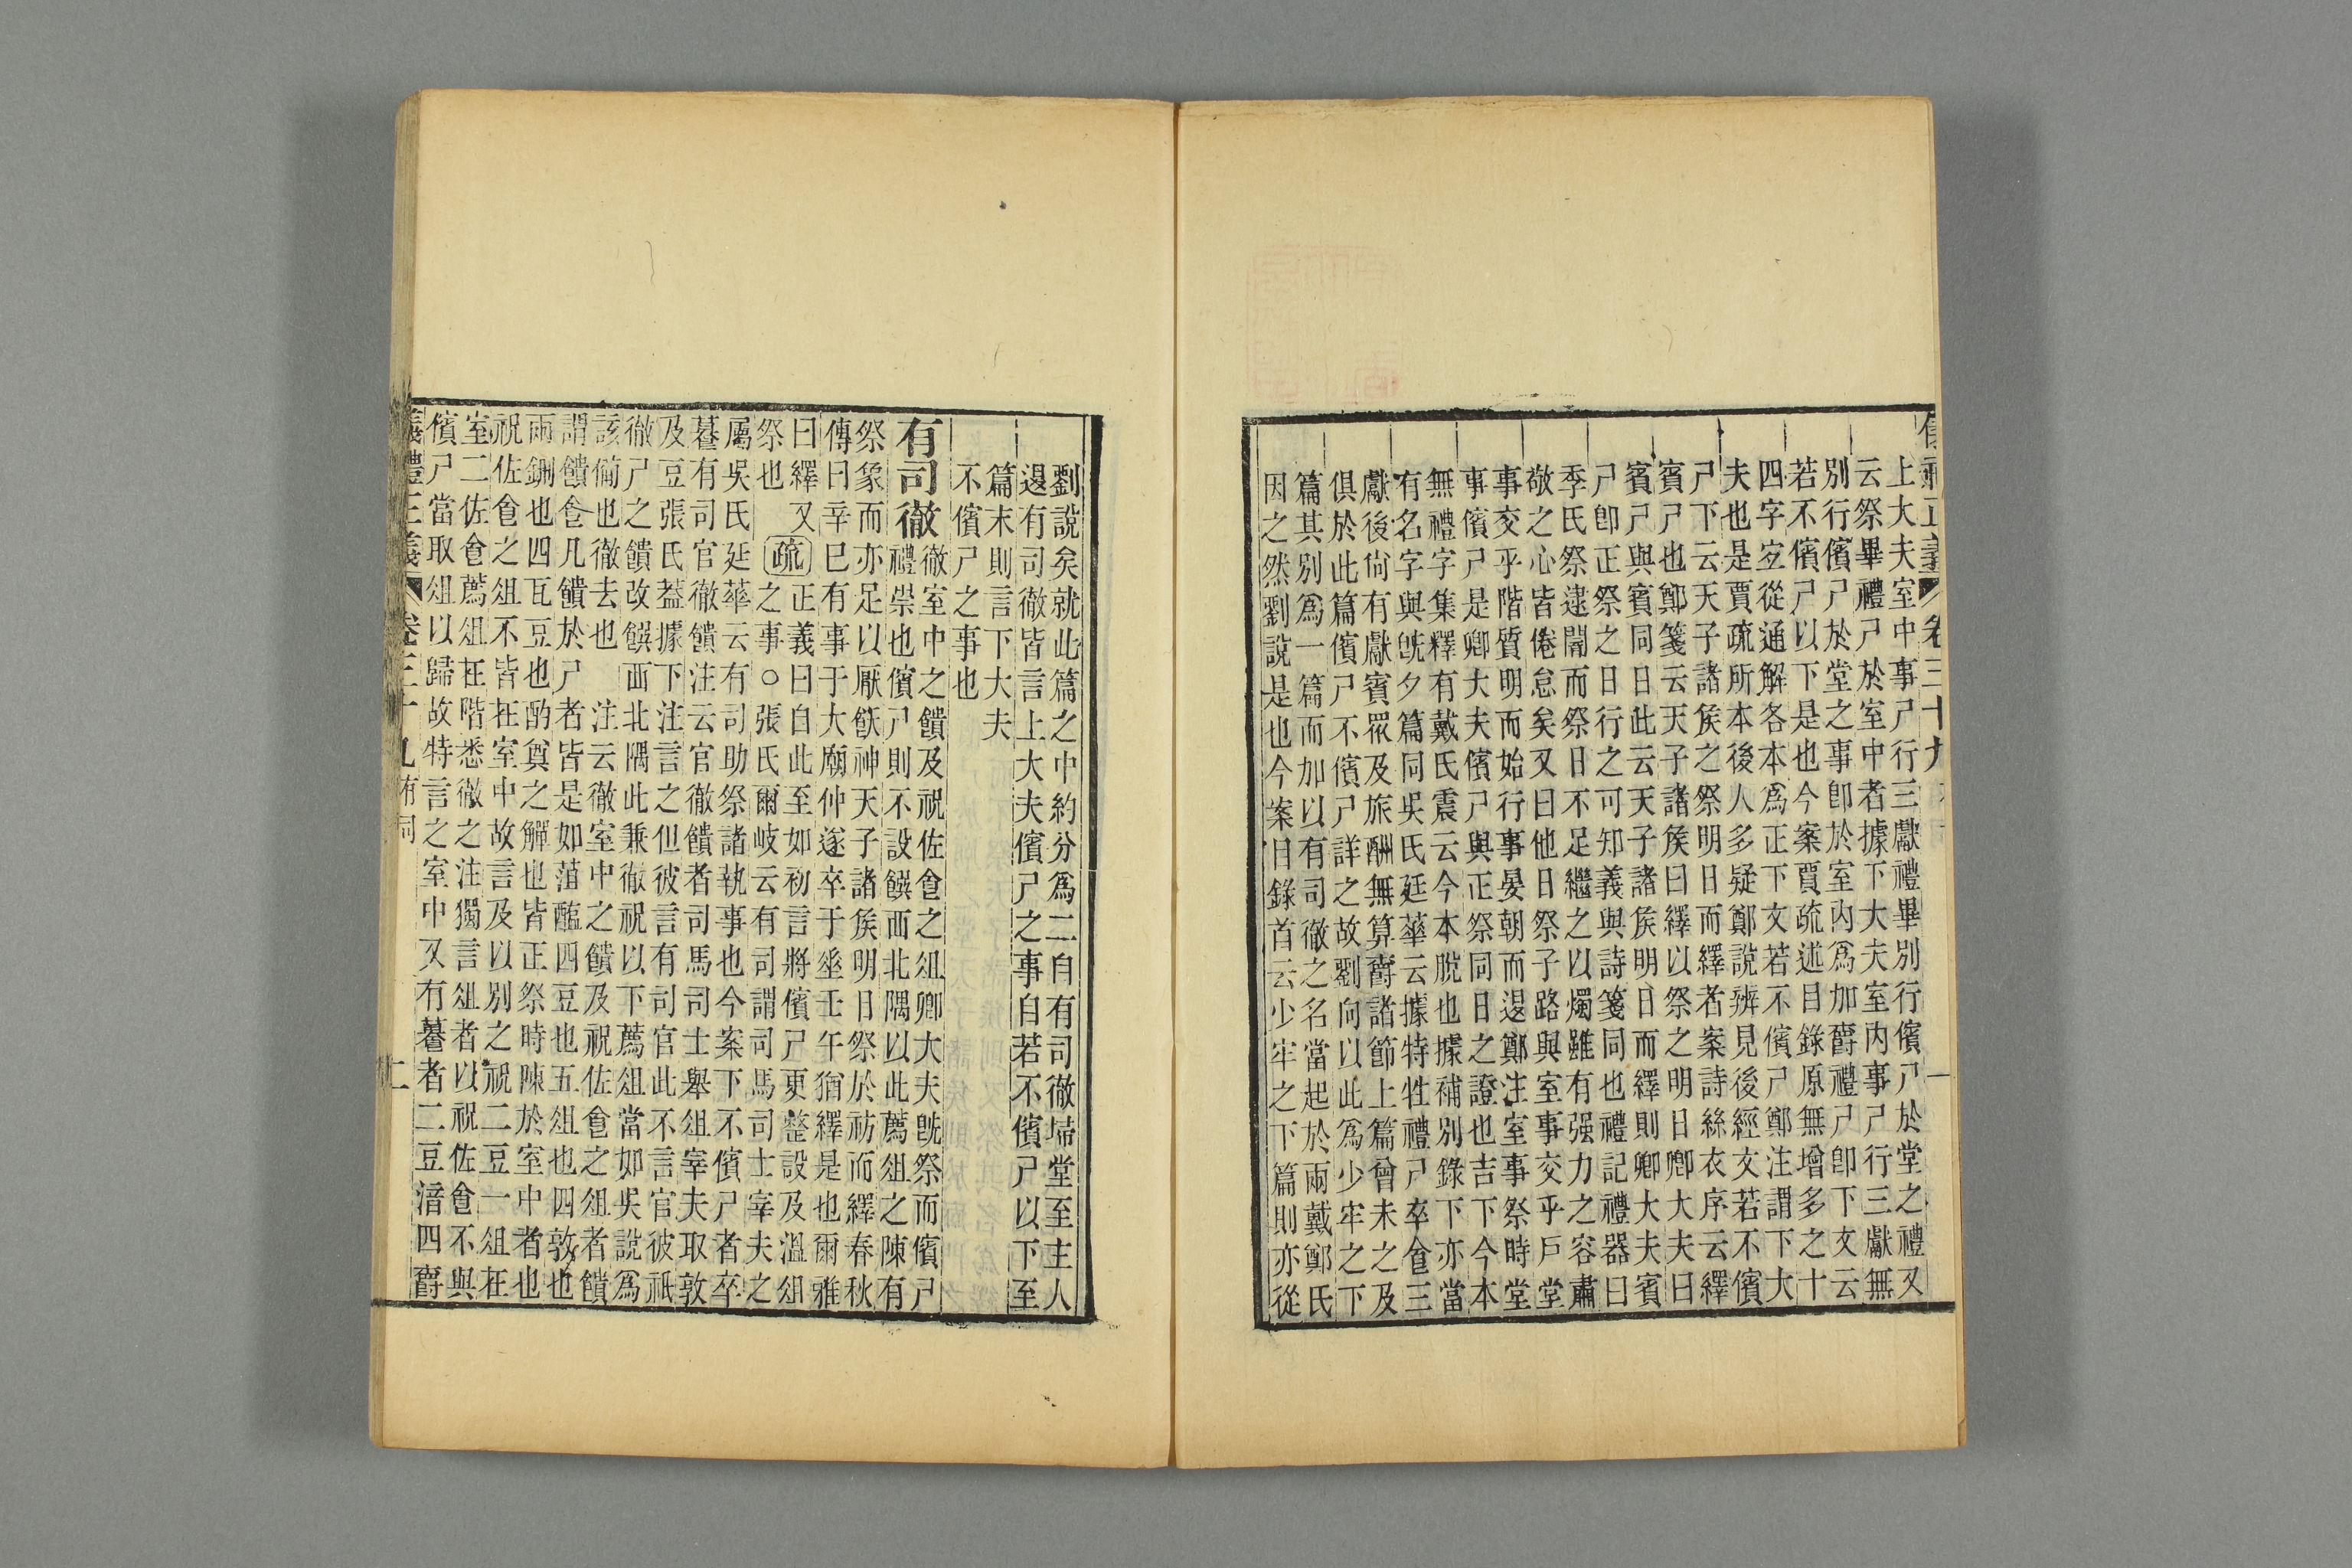 儀禮正義 卷三十九 一
上大夫室中事尸行三獻禮畢別行儐尸於堂之禮又
云祭畢禮尸於室中者據下大夫室內事尸行三獻無
別行儐尸於堂之事卽於室內爲加爵禮尸卽下文云
若不儐尸以下是也今案賈疏述目錄原無增多之十
四字宐從通解各本爲正下文若不儐尸鄭注謂下大
夫也是賈疏所本後人多疑鄭說辨見後經文若不儐
尸下云天子諸矦之祭明日而繹者案詩絲衣序云繹
賓尸也鄭箋云天子諸矦曰繹以祭之明日卿大夫曰
賓尸與賓同日此云天子諸矦明日而繹則卿大夫賓
尸卽正祭之日行之可知義與詩箋同也禮記禮器曰
季氏祭逮闇而祭日不足繼之以燭雖有强力之容肅
敬之心皆倦怠矣又曰他日祭子路與室事交乎戶堂
事交乎階質明而始行事晏朝而退鄭注室事祭時堂
事儐尸是卿大夫儐尸與正祭同日之證也吉下今本
無禮字集釋有戴氏震云今本脫也據補別錄下亦當
有名字與旣夕篇同吳氏廷華云據特牲禮尸卒食三
獻後尙有獻賓眾及旅酬無算爵諸節上篇曾未之及
俱於此篇儐尸不儐尸詳之故劉向以此爲少牢之下
篇其別爲一篇而加以有司徹之名當起於兩戴鄭氏
因之然劉說是也今案目錄首云少牢之下篇則亦從
劉說矣就此篇之中約分爲二自有司徹埽堂至主人
退有司徹皆言上大夫儐尸之事自若不儐尸以下至
篇末則言下大夫
不儐尸之事也
有司徹徹室中之饋及祝佐食之俎卿大夫旣祭而儐尸
禮崇也儐尸則不設饌西北隅以此薦俎之陳有
祭象而亦足以厭飫神天子諸矦明日祭於祊而繹春秋
傳曰辛巳有事于大廟仲遂卒于垂壬午猶繹是也爾雅
曰繹又
祭也疏正義曰自此至如初言將儐尸更整設及溫俎
之事○張氏爾岐云有司謂司馬司士宰夫之
屬吳氏廷華云有司助祭諸執事也今案下不儐尸者卒
暮有司官徹饋注云官徹饋者司馬司士舉俎宰夫取敦
及豆張氏葢據下注言之但彼言有司官此不言官彼祇
徹尸之饋改饌西北隅此兼徹祝以下薦俎當如吳說爲
該備也徹去也 注云徹室中之饋及祝佐食之俎者饋
謂饋食凡饋於尸者皆是如菹醢四豆也五俎也四敦也
兩鉶也四瓦豆也酌奠之觶也皆正祭時陳於室中者也
祝佐食之俎不皆在室中故言及以別之祝二豆一俎在
室二佐食薦俎在階悉徹之注獨言俎者以祝佐食不與
儐尸當取俎以歸故特言之室中又有暮者二豆湆四爵
儀禮正義 卷三十九 有司 二